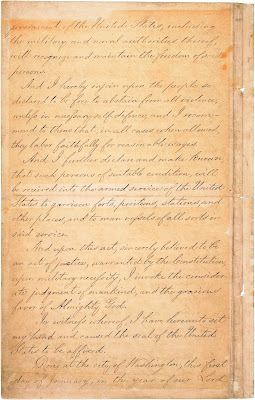 government of the United States, including
the military and naval authorities thereof,
will recognize and maintain the freedom of said
persons.
And I hereby enjoin upon the people so
declared to be free to abstain from all violence,
unless in necessary self-defence; and I recom-
mend to them that, in all cases when allowed,
they labor faithfully for reasonable wages.
And I further declare and make known
that such persons of suitable condition, will
be received into the armed service of the United
States to garrison forts, positions, stations, and
other places, and to man vessels of all sorts in
said service.
And upon this act, sincerely believed to be
an act of justice, warranted by the Constitution
upon military necessity, I invoke the consider-
ate judgment of mankind, and the gracious
favor of Almighty God.
In witness whereof, I have hereunto set
my hand and caused the seal of the United
States to be affixed.
Done at the city of Washington, this first
day of January, in the year of our Lord